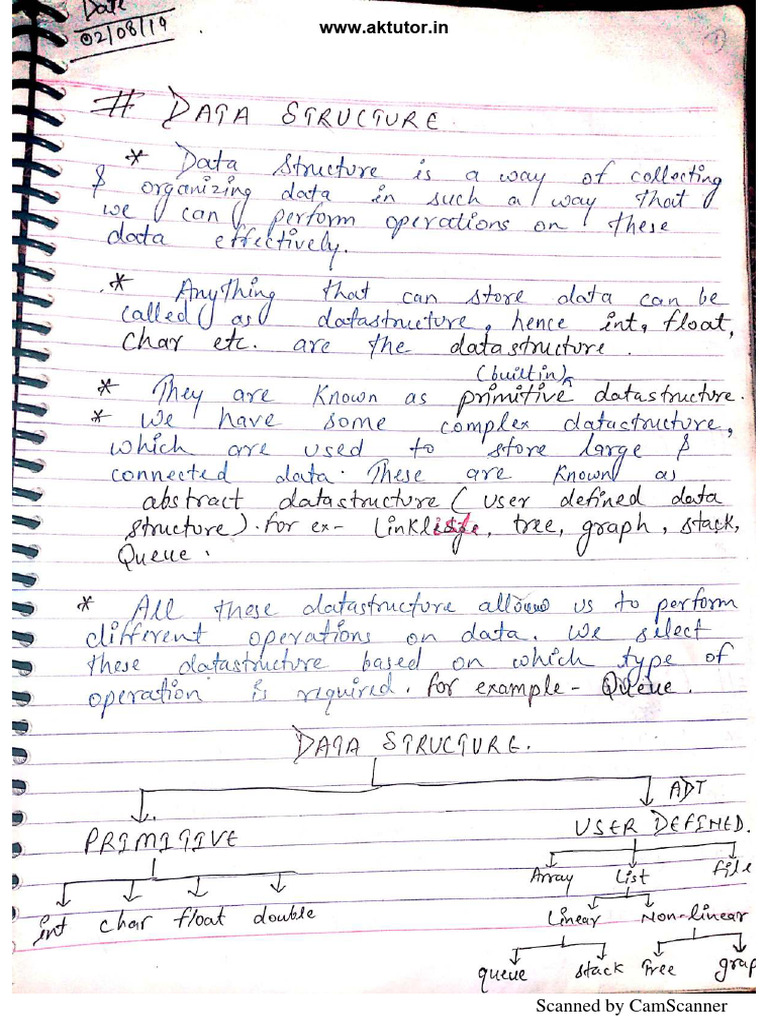 Date
02/08/19
www.aktutor.in
1
# DATA STRUCTURE.
* Data Structure is a way of collecting
& organizing data in such a way that
we can perform operations on these
data effectively.
* Anything that can store data can be
called as datastructure, hence int, float,
char etc. are the datastructure.
(built in)
* They are known as primitive datastructure.
* We have some complex datastructure,
which are used to store large &
connected data. These are known as
abstract datastructure (user defined data
structure). for ex- linklist, tree, graph, stack,
Queue.
* All these datastructure allows us to perform
different operations on data. We select
these datastructure based on which type of
operation is required. for example - Queue.
DATA STRUCTURE.
ADT
PRIMITIVE USER DEFINED.
Array List file
int char float double Linear Non-linear
queue stack Tree grap
Scanned by CamScanner